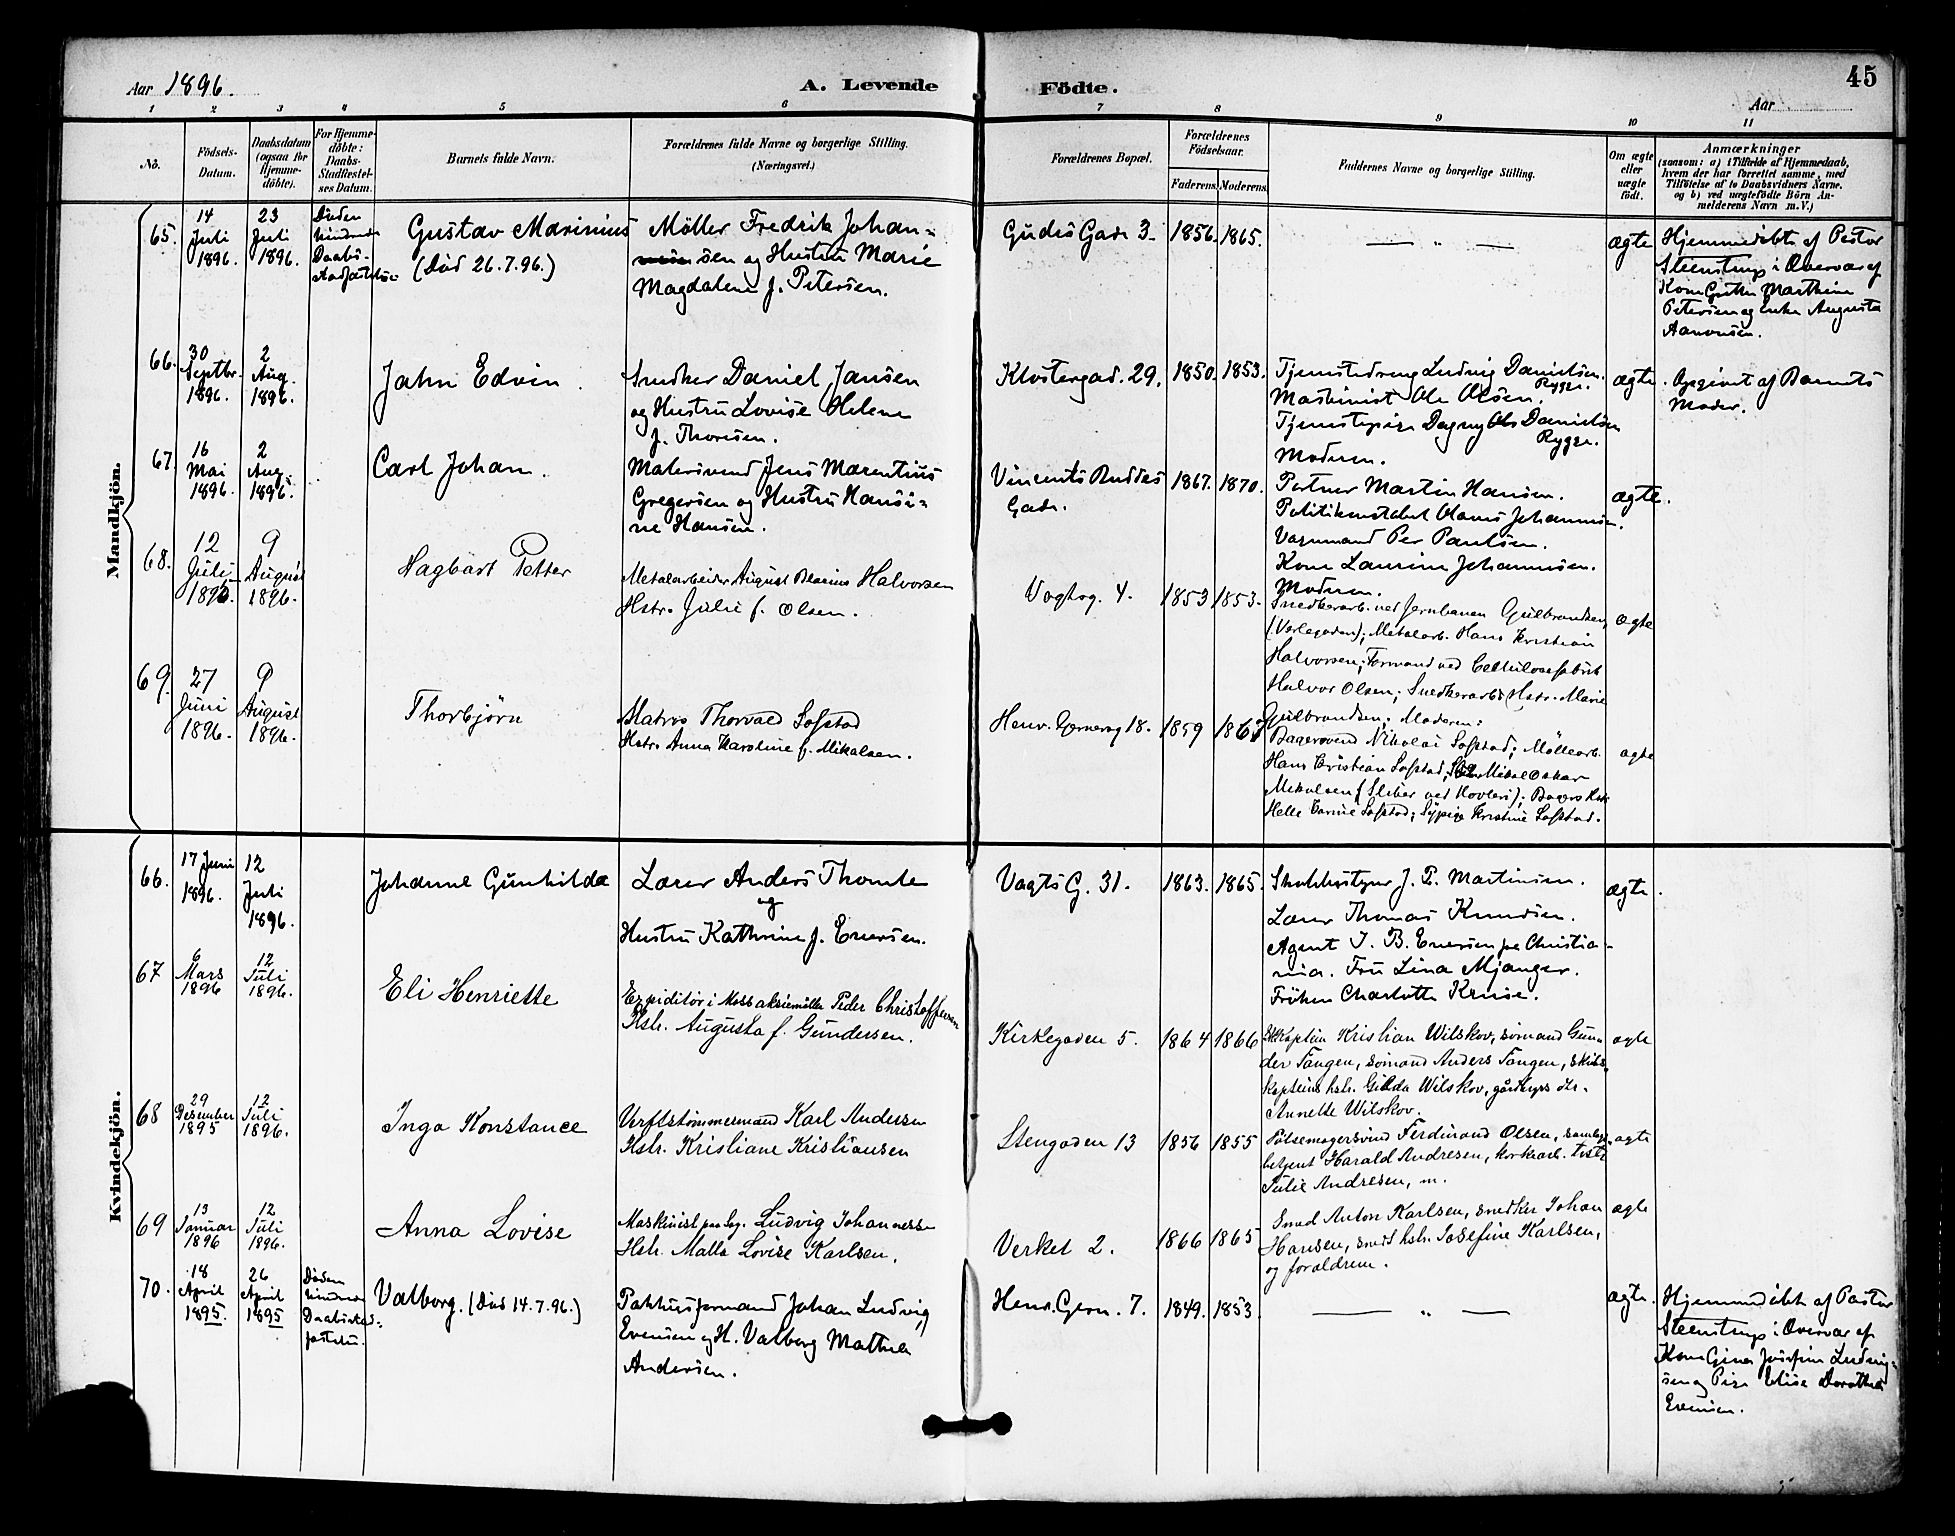 Aar 1896.
A. Levende
Födte.
45
Aar
1 2 3 4 5 6 7 8 9 10 11
No.
Födsels-
Datum.
Daabsdatum
(ogsaa for
Hjemme-
döbte).
For Hjemme-
döbte:
Daabs-
Stadfæstel-
ses Datum.
Barnets fulde Navn.
Forældrenes fulde Navne og borgerlige Stilling.
(Næringsvei.)
Forældrenes Bopæl.
Forældrenes
Födselsaar.
Faderens. Moderens.
Faddernes Navne og borgerlige Stilling.
Om ægte
eller
uægte
födt.
Anmærkninger
(saasom: a) i Tilfælde af Hjemmedaab,
hvem der har forrettet samme, med
Tilföielse af to Daabsvidners Navne.
og b) ved uægtefödte Börn An-
melderens Navn m.V.)
Mandkjön.
65.
14
Juli
1896.
23
Juli
1896.
Döden
hindrede
Daabs-
stadfæstelse
Gustav Marinius
(Död 26.7.96.)
Möller Fredrik Johan-
sen og Hustru Marie
Magdalene f. Petersen.
Gudes Gade 3.
1856. 1865.
— " —
ægte
Hjemmedöbt af Pastor
Steenstrup i Overvær af
Kone Grethe Marthine
Petersen og Enke Augusta
Aanonsen.
66.
30
Septbr
1896.
2
Aug.
1896.
John Edvin.
Snedker Daniel Jansen
og Hustru Lovise Helene
f. Thoresen.
Klostergad. 29.
1850. 1853.
Tjenestedreng Ludvig Danielsen.
Rygge.
Maskinist Ole Olsen.
Tjenestepige Dagny Danielsen
Rygge.
Moderen.
ægte.
Opgivet af Barnets
Moder.
67.
16
Mai
1896.
2
Aug.
1896.
Carl Johan.
Malersvend Jens Marentius
Gregersen og Hustru Hansi-
ne Hansen.
Vincents Buddes
Gade.
1867. 1870.
Portner Martin Hansen.
Politikonstabel Olaves Johannesen.
Vognmand Per Paulsen.
Kone Laurine Johannesen.
Moderen.
ægte.
68.
12
Juli
1896.
9
August
1896.
Hagbart Petter
Metalarbeider August Halvorsen
Hstr. Julie f. Olsen.
Vogtsg. 4.
1853 1853.
Snedkerarb. ved Jernbanen Gulbrandsen,
(Vorlegaden); Metalarb. Hans Kristian
Halvorsen; Formand ved Cellulosefabrik
Halvor Olsen; Snedkerarb. Hstr. Marie
Gulbrandsen; Moderen.
ægte
69.
27
Juni
1896.
9
August
1896.
Thorbjörn
Matros Thorvald Sofstad
Hstr. Anna Karoline f. Mikalsen.
Henr. Gernersg 18.
1859 1867
Bagersvend Nikolai Sofstad; Möllearb.
Hans Kristian Sofstad; Mikal Oskar
Mikalsen (Sliber ved Hovleri); Bagers Hstr.
Helle Karine Sofstad; Sypige Kristine Sofstad.
ægte
Kvindekjön.
66.
17 Juni
1896.
12
Juli
1896.
Johanne Gunhilda
Lærer Anders Thomle
og
Hustru Kathrine f. Enersen.
Vogts G. 31.
1863. 1865.
Skolebestyrer J. P. Martinsen.
Lærer Thomas Knudsen.
Agent J. B. Enersen fra Christia-
nia. Fru Lina Mjanger.
Fröken Charlotte Kruse.
ægte.
67
6
Mars
1896
12
Juli
1896.
Eli Henriette
Expeditör i Moss aktiemölle Peder Christoffersen
Hstr. Augusta f. Gundersen.
Kirkegaden 5.
1864 1866
Skibskaptein Kristian Wilskov, sömand Gun-
der Tangen, sömand Anders Tangen, skibs-
kapteins hstr. Gilda Wilskov, gårdbrs dtr.
Annette Wilskov.
ægte
68
29
Desember
1895
12
Juli
1896.
Inga Konstance
Verftstömmermand Karl Andersen
Hstr. Kristiane Kristiansen
Stengaden 13
1856 1855
Pölsemagersvend Ferdinand Olsen,
betjent Harald Andresen, korkearb.
Julie Andresen, m.
ægte
69
13
Januar
1896
12
Juli
1896.
Anna Lovise
Maskinist paa Sag. Ludvig Johannesen
Hstr. Malla Lovise Karlsen.
Verket 2.
1866 1865
Smed Anton Karlsen, snedker Johan
Hansen, smeds hstr. Josefine Karlsen,
og foraldrene.
ægte
70.
18
April
1895.
26
April
1895
Döden
hindrede
Daabsstad-
fæstelse.
Valborg. (Död 14.7.96.)
Pakhusformand Johan Ludvig
Evensen og H. Valborg Mathea
Andersen.
Henr. Gern. 7.
1849. 1853.
— " —
ægte.
Hjemmedöbt af Pastor
Steenstrup i Overvær af
Kone Gina Josefine Ludvig-
sen og Pige Elise Dorothea
Evensen.